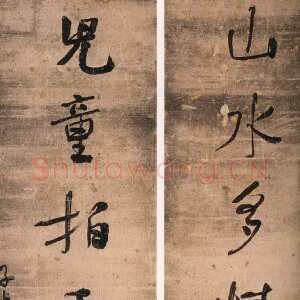 山水多
兒童拍
Shufawang.CN